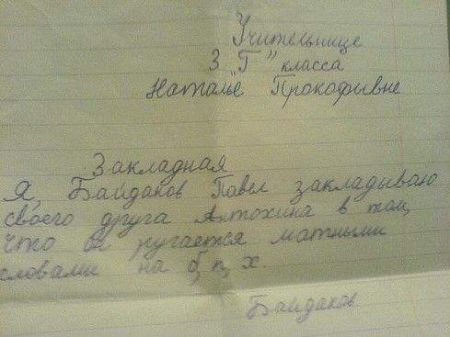 Учительнице
3 "Г" класса
Наталье Прокофьивне
Закладная
Я, Байдаков Павел закладываю
своего друга Антохина в том,
что он ругается матными
словами на б, п, х.
Байдаков